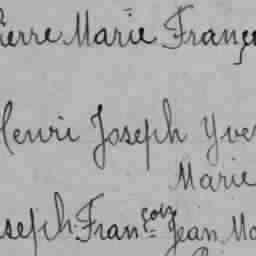 ierre Marie Franço
Henri Joseph Yve
Marie
seph Françoiz Jean Ma